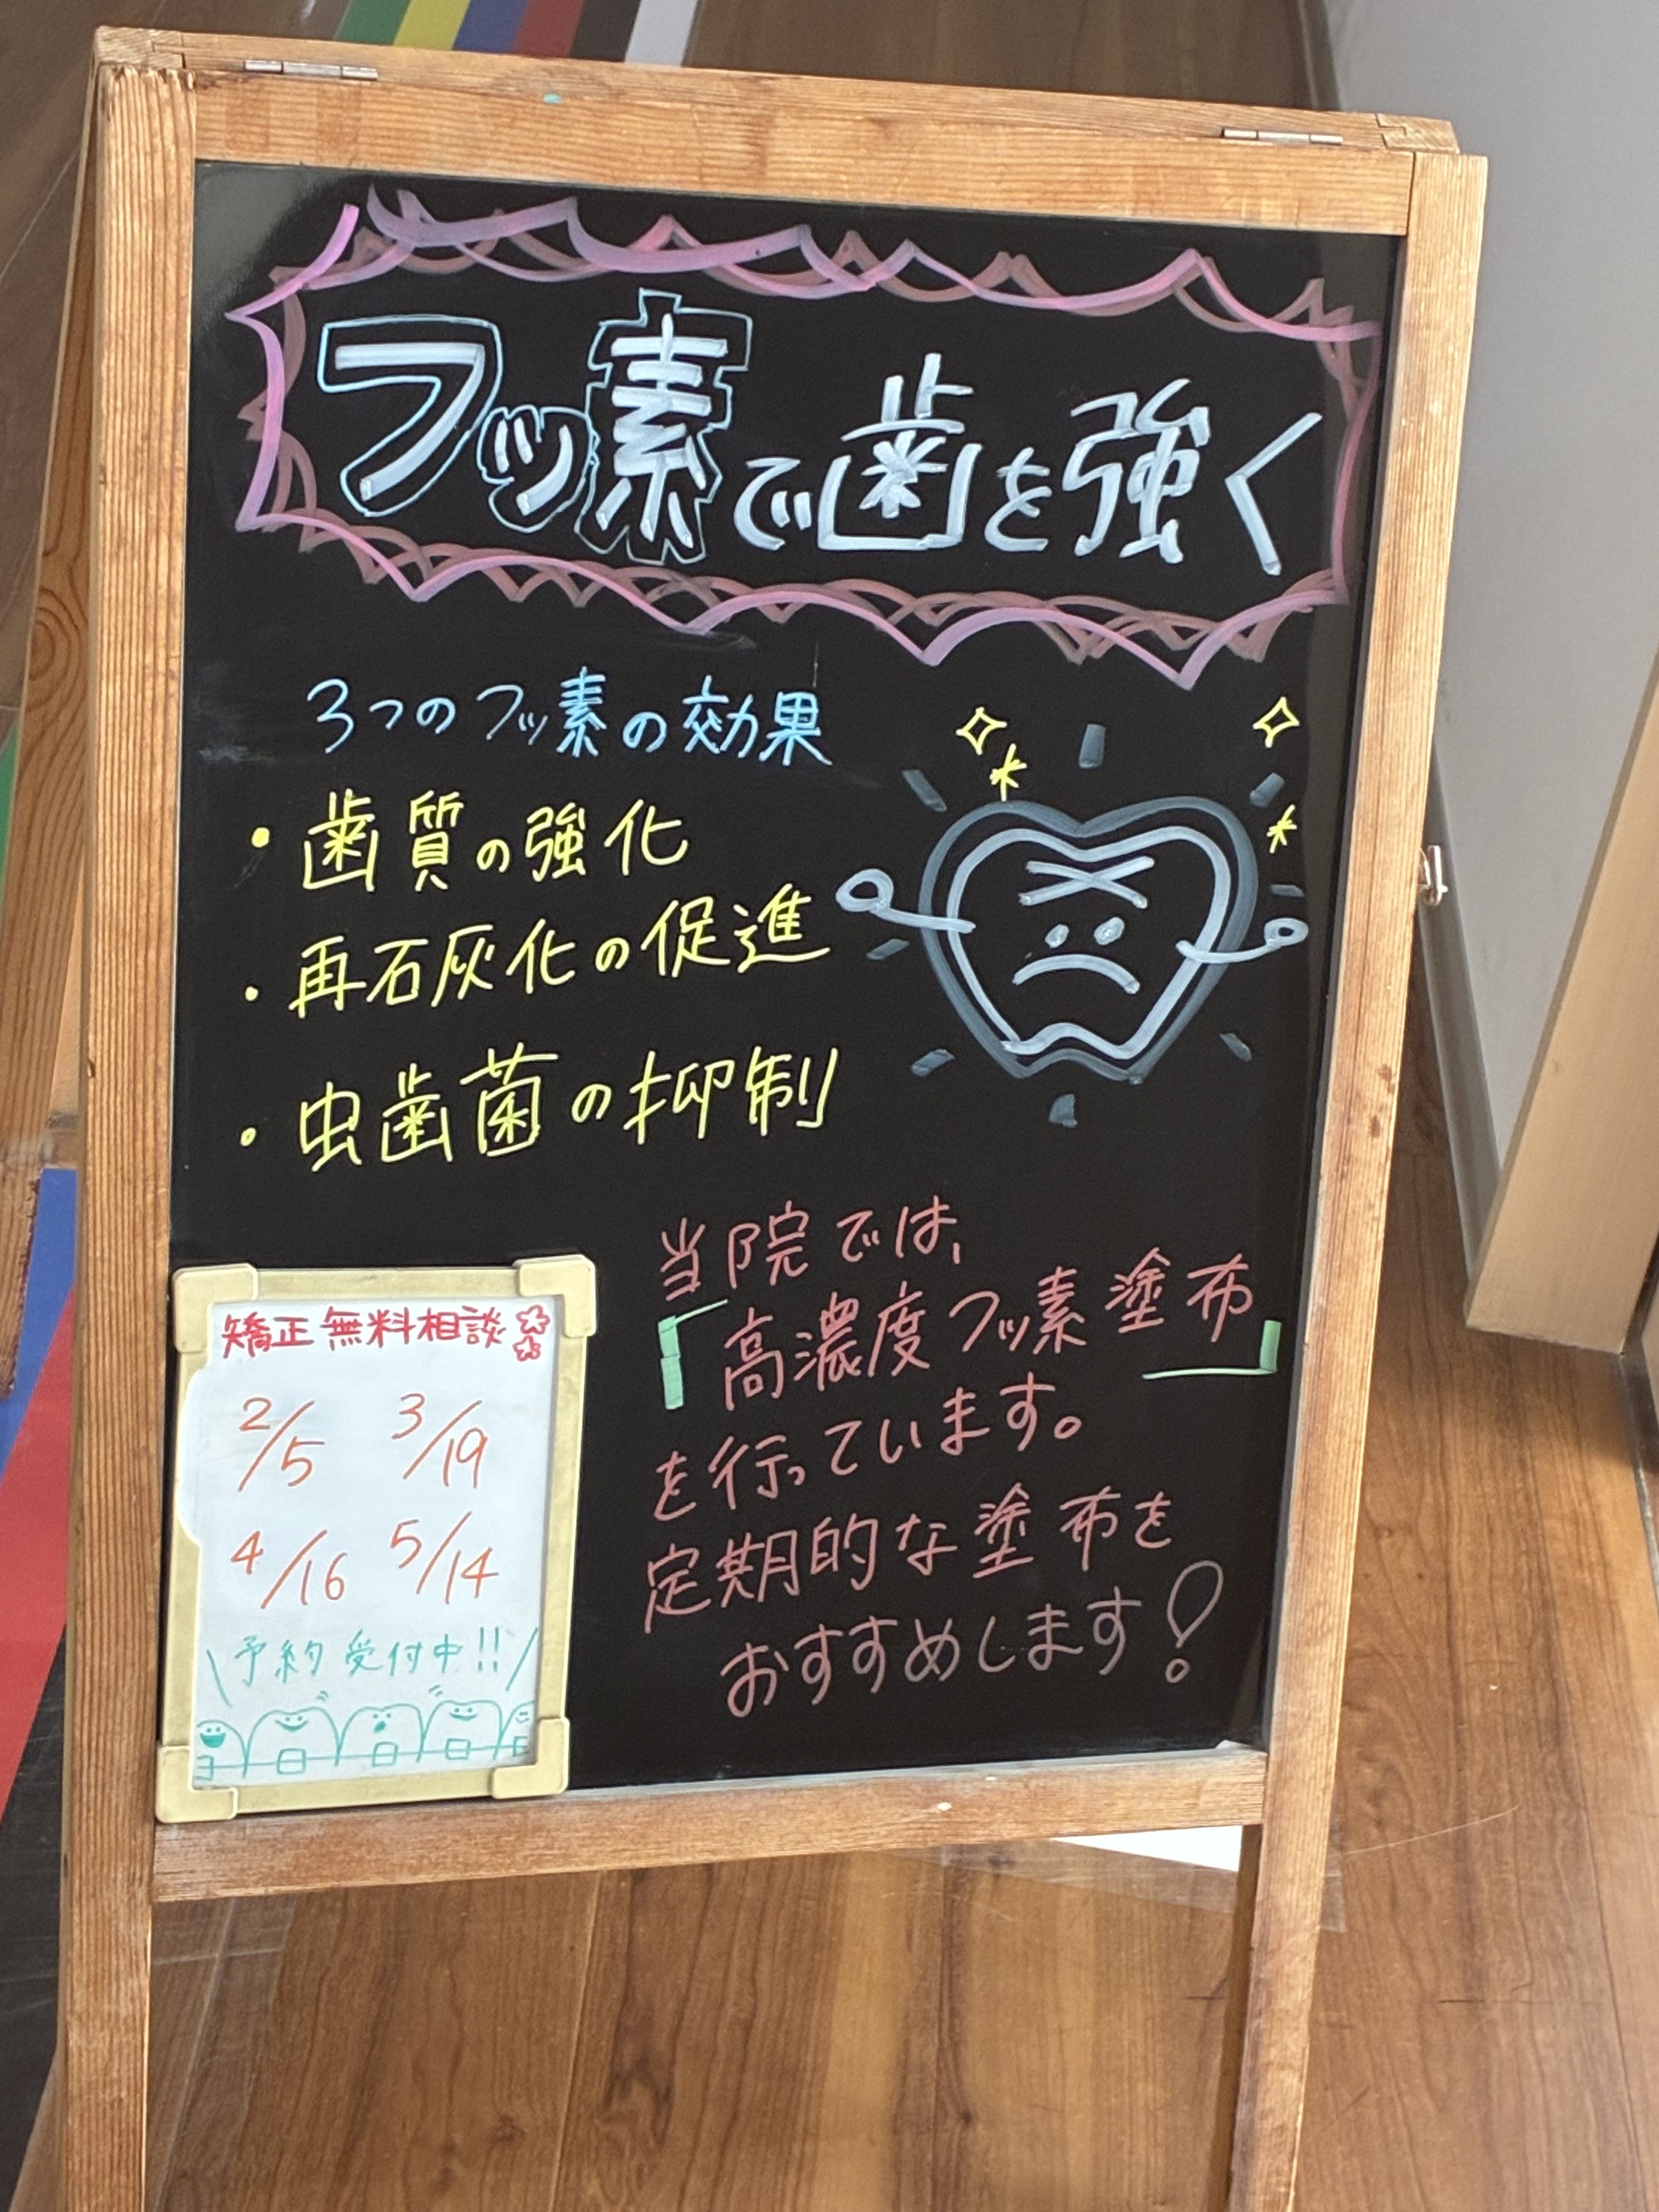 フッ素で歯を強く
3つのフッ素の効果
・歯質の強化
・再石灰化の促進
・虫歯菌の抑制
当院では、
「高濃度フッ素塗布」
を行っています。
定期的な塗布を
おすすめします!
矯正無料相談
2/5 3/19
4/16 5/14
\予約受付中!!/